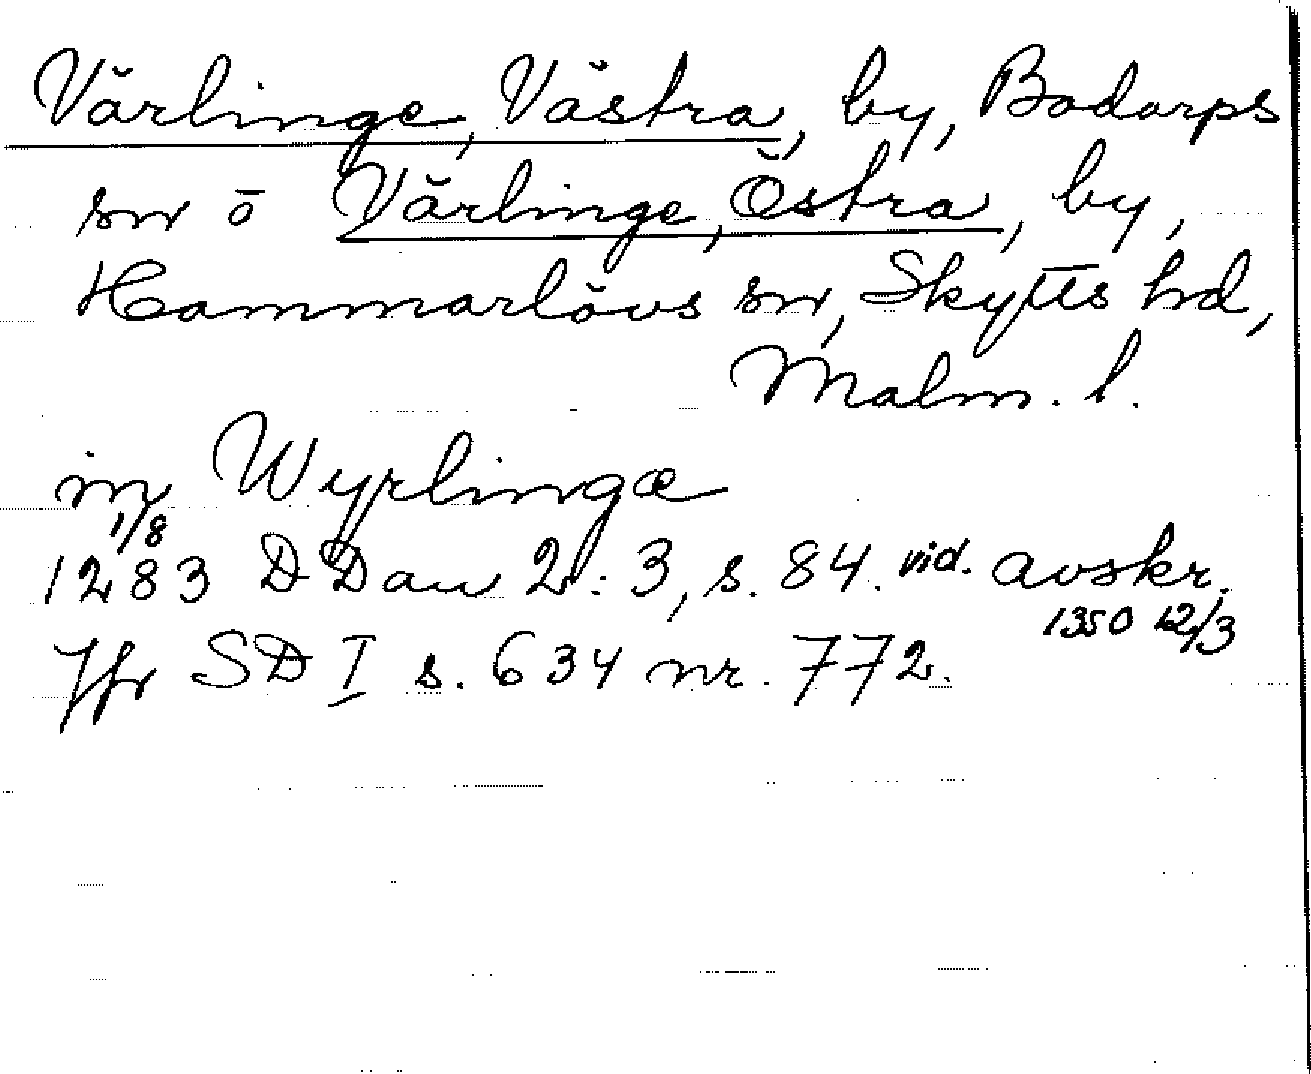 Värlinge, Västra, by, Bodarps
sn o̅ Värlinge, Östra, by,
Hammarlövs sn, Skytts hd,
Malm. l.
in Wyrlingæ
1/8
1283 DDan 2:3, s. 84. vid. avskr.
1350 12/3
Jfr SD I s. 634 nr. 772.